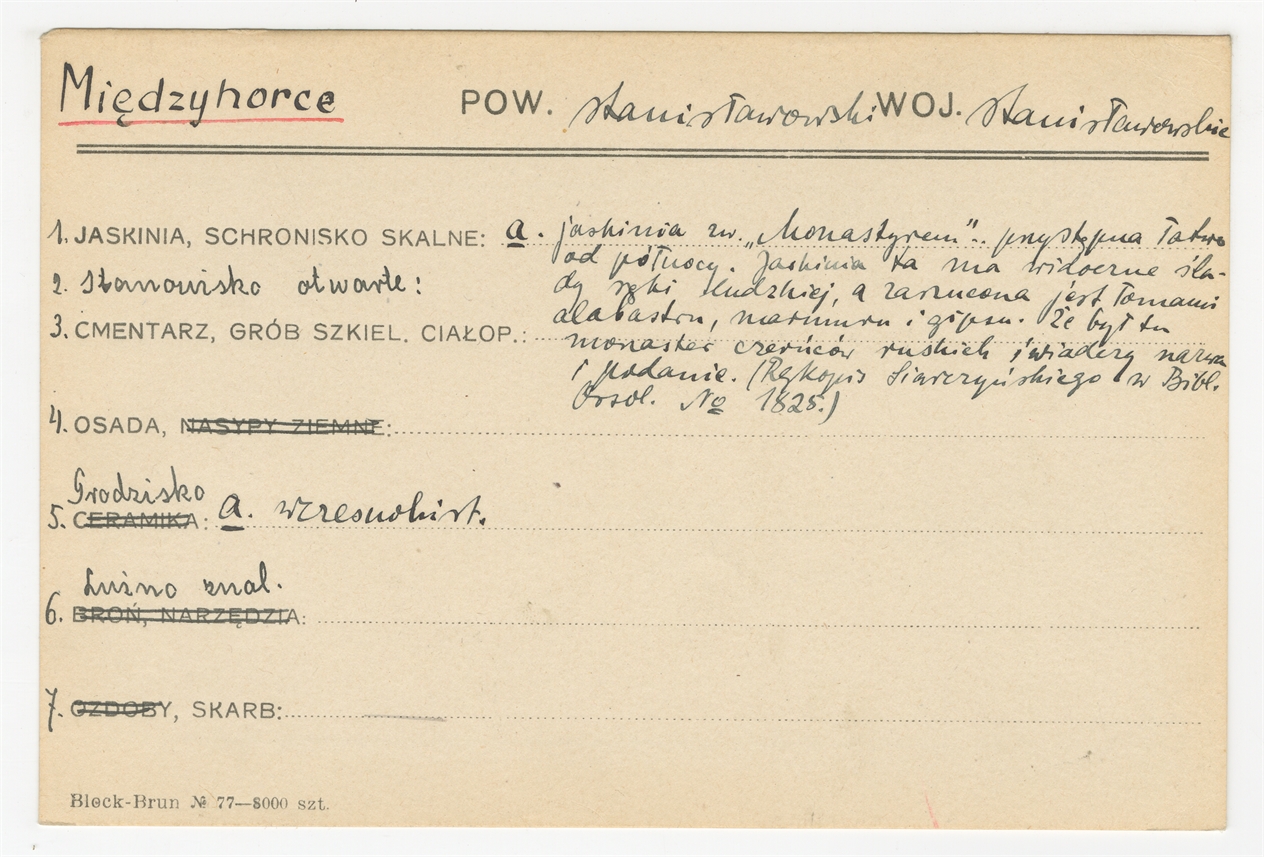 Międzyhorce POW. stanisławowski WOJ. Stanisławowskie
1. JASKINIA, SCHRONISKO SKALNE: a. jaskinia zw. „Monastyrem”.. przystępna łatwo
od północy. Jaskinia ta ma widoczne śla-
2. Stanowisko otwarte:
dy ręki ludzkiej, a zarzucona jest łomami
alabastru, marmuru i gipsu. Że był tu
3. CMENTARZ, GRÓB SZKIEL. CIAŁOP.:
monaster czerńców ruskich świadczy nazwa
i podanie. (Rękopis Siarczyńskiego w Bibl.
Ossol. No 1825.)
4. OSADA, NASYPY ZIEMNE:
Grodzisko
5. CERAMIKA: a. wczesnohist.
Luźno znal.
6. BROŃ, NARZĘDZIA:
7. OZDOBY, SKARB:
Block-Brun № 77—8000 szt.